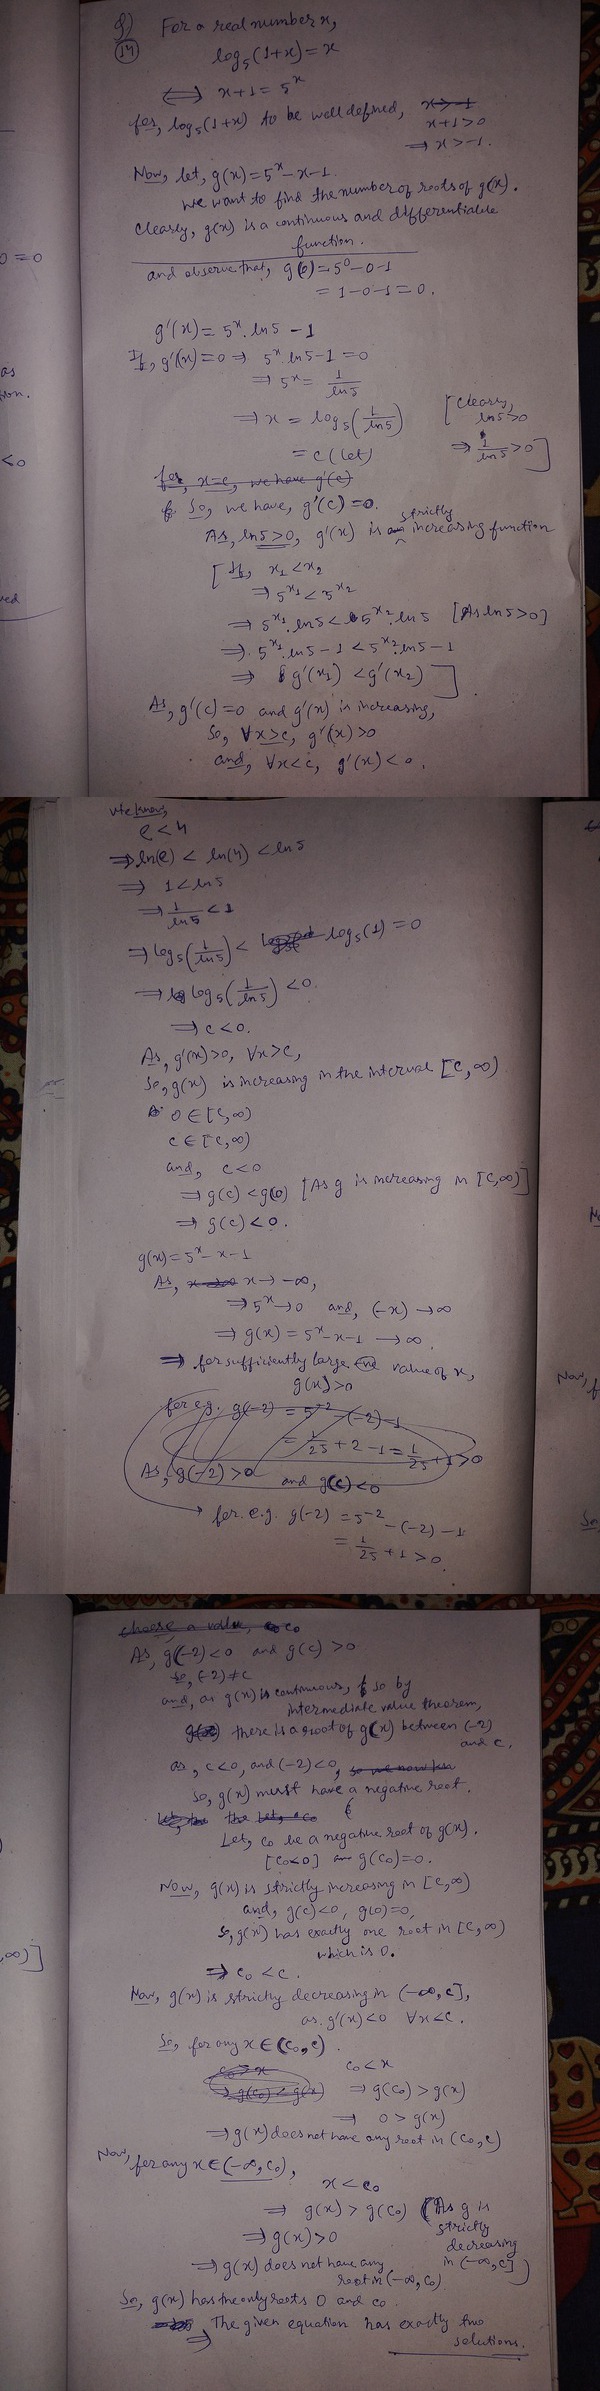 Q)
14
For a real number x,
log₅(1+x) = x
⟺ x+1 = 5ˣ
for, log₅(1+x) to be well defined, x > -1
x+1>0
⇒ x>-1.
Now, let, g(x) = 5ˣ-x-1.
We want to find the number of roots of g(x).
Clearly, g(x) is a continuous and differentiable
function.
and observe that, g(0) = 5⁰-0-1
= 1-0-1 = 0.
g'(x) = 5ˣ. ln5 - 1
If, g'(x) = 0 ⇒ 5ˣ. ln5 - 1 = 0
⇒ 5ˣ = 1/ln5
⇒ x = log₅(1/ln5) [Clearly, ln5>0
= c (let) ⇒ 1/ln5 > 0]
for, x=c, we have g'(c)
So, we have, g'(c) = 0.
As, ln5>0, g'(x) is strictly increasing function
[If, x₁ < x₂
⇒ 5ˣ¹ < 5ˣ²
⇒ 5ˣ¹. ln5 < 5ˣ². ln5 [As ln5>0]
⇒ 5ˣ¹. ln5 - 1 < 5ˣ². ln5 - 1
⇒ g'(x₁) < g'(x₂)].
As, g'(c)=0 and g'(x) is increasing,
So, ∀x>c, g'(x)>0
and, ∀x<c, g'(x)<0.
We know,
e<4
⇒ ln(e) < ln(4) < ln5
⇒ 1 < ln5
⇒ 1/ln5 < 1
⇒ log₅(1/ln5) < log₅(1) = 0
⇒ log₅(1/ln5) < 0.
⇒ c<0.
As, g'(x)>0, ∀x>c,
So, g(x) is increasing in the interval [c,∞)
0 ∈ [c,∞)
c ∈ [c,∞)
and, c<0
⇒ g(c) < g(0) [As g is increasing in [c,∞)]
⇒ g(c) < 0.
g(x) = 5ˣ-x-1
As, x → -∞,
⇒ 5ˣ → 0 and, (-x) → ∞
⇒ g(x) = 5ˣ-x-1 → ∞
⇒ for sufficiently large -ve value of x,
g(x)>0
for e.g. g(-2) = 5⁻² - (-2) - 1
= 1/25 + 2 - 1 = 1/25 + 1 > 0
As, g(-2)>0 and g(c)<0
for. e.g. g(-2) = 5⁻² - (-2) - 1
= 1/25 + 1 > 0.
choose a value, c₀
As, g(-2)<0 and g(c) >0
So, (-2) ≠ c
and, as g(x) is continuous, so by
intermediate value theorem,
there is a root of g(x) between (-2)
and c.
as, c<0, and (-2)<0,
So, g(x) must have a negative root.
Let, c₀ be a negative root of g(x).
[c₀<0] g(c₀)=0.
Now, g(x) is strictly increasing in [c,∞)
and, g(c)<0, g(0)=0,
So, g(x) has exactly one root in [c,∞)
which is 0.
⇒ c₀ < c.
Now, g(x) is strictly decreasing in (-∞,c],
as g'(x)<0 ∀x<c.
So, for any x∈(c₀,c).
c₀ > x c₀ < x
⇒ g(c₀) < g(x) ⇒ g(c₀) > g(x)
⇒ 0 > g(x)
⇒ g(x) does not have any root in (c₀,c)
Now, for any x∈(-∞,c₀),
x < c₀
⇒ g(x) > g(c₀) (As g is
strictly
⇒ g(x)>0 decreasing
in (-∞,c])
⇒ g(x) does not have any
root in (-∞,c₀)
So, g(x) has the only roots 0 and c₀.
⇒ The given equation has exactly two
solutions.